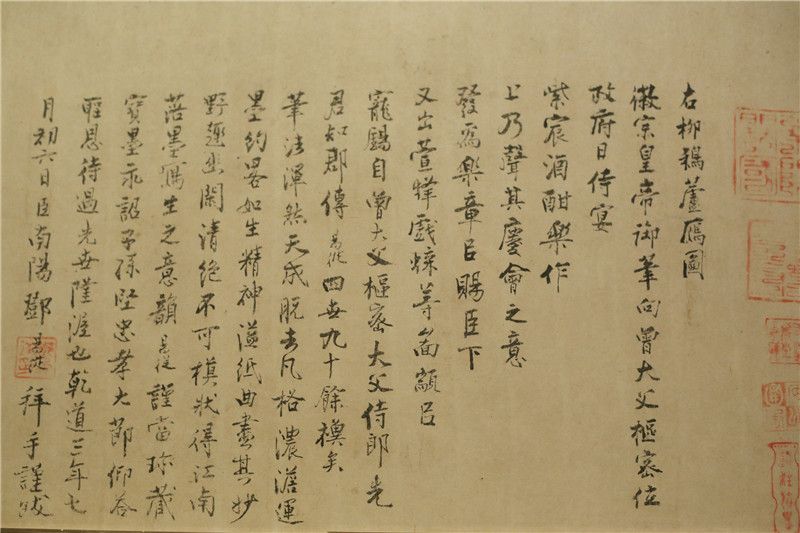 右柳鵶蘆鴈圖
徽宗皇帝御筆向曾大父樞密位
政府日侍宴
紫宸酒酣樂作
上乃聲其慶會之意
發爲樂章以賜臣下
又出萱草戲蝶等面顓以
寵錫自曾大父樞密大父侍郎先
君知郡傳易從四世九十餘禩矣
筆法渾然天成脫去凡格濃淡運
墨約畧如生精神溢紙曲盡其妙
野趣幽閑清絕不可模狀得江南
落墨寫生之意韻易從謹當珍藏
寶墨永詔子孫堅忠孝大節仰答
聖恩待過先世隆渥也乾道三年七
月初六日臣南陽鄧易從拜手謹跋